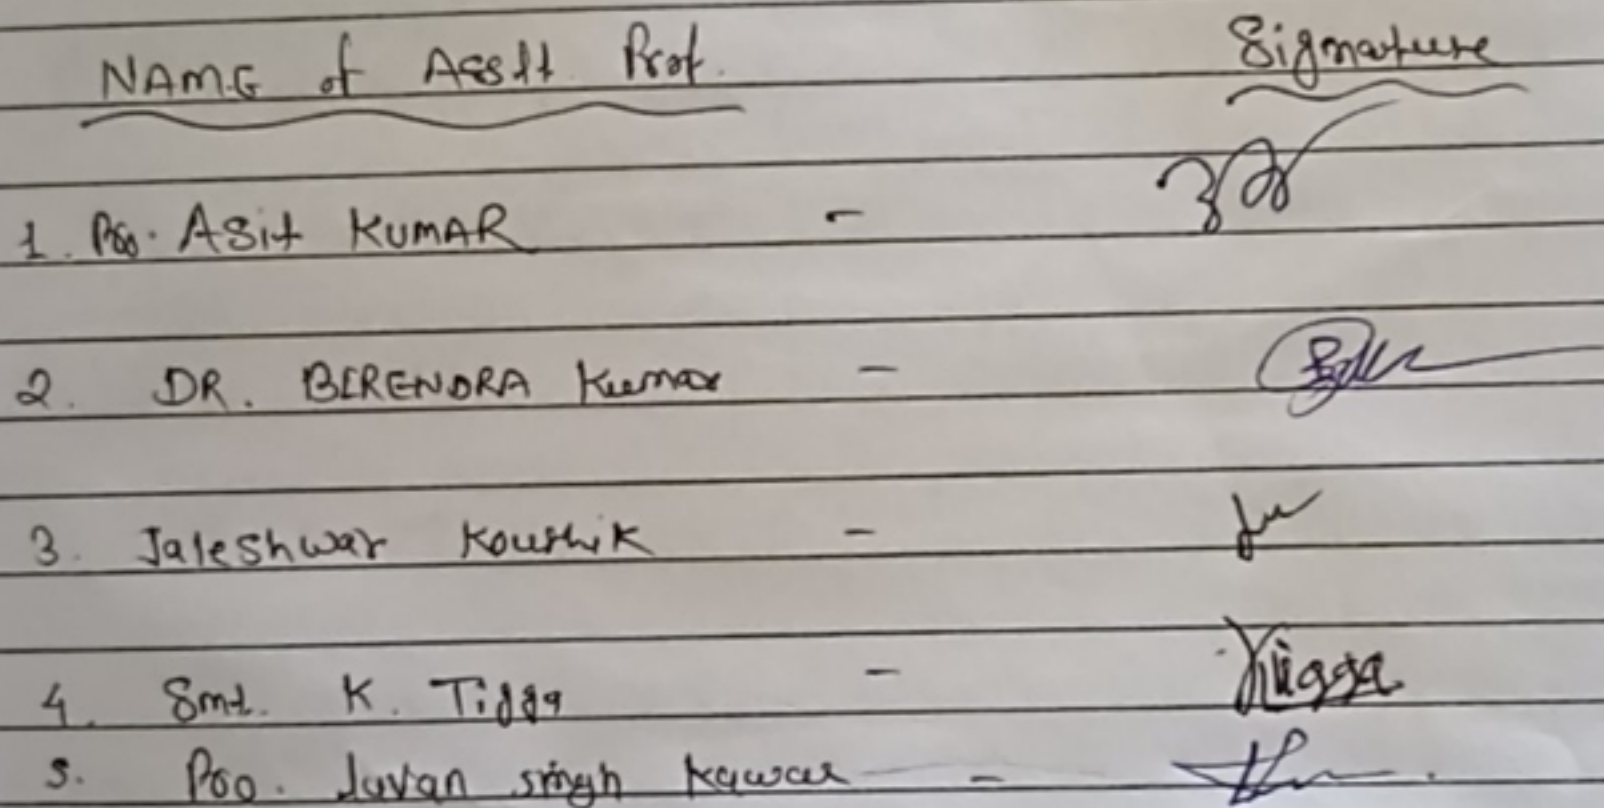 NAME of Asstt. Prof. Signature
1. Pro. Asit KUMAR -
2. DR. BIRENDRA Kumar -
3. Jaleshwar Koushik -
4. Smt. K. Tigga - Ktigga
5. Pro. Juvan singh Kawar -